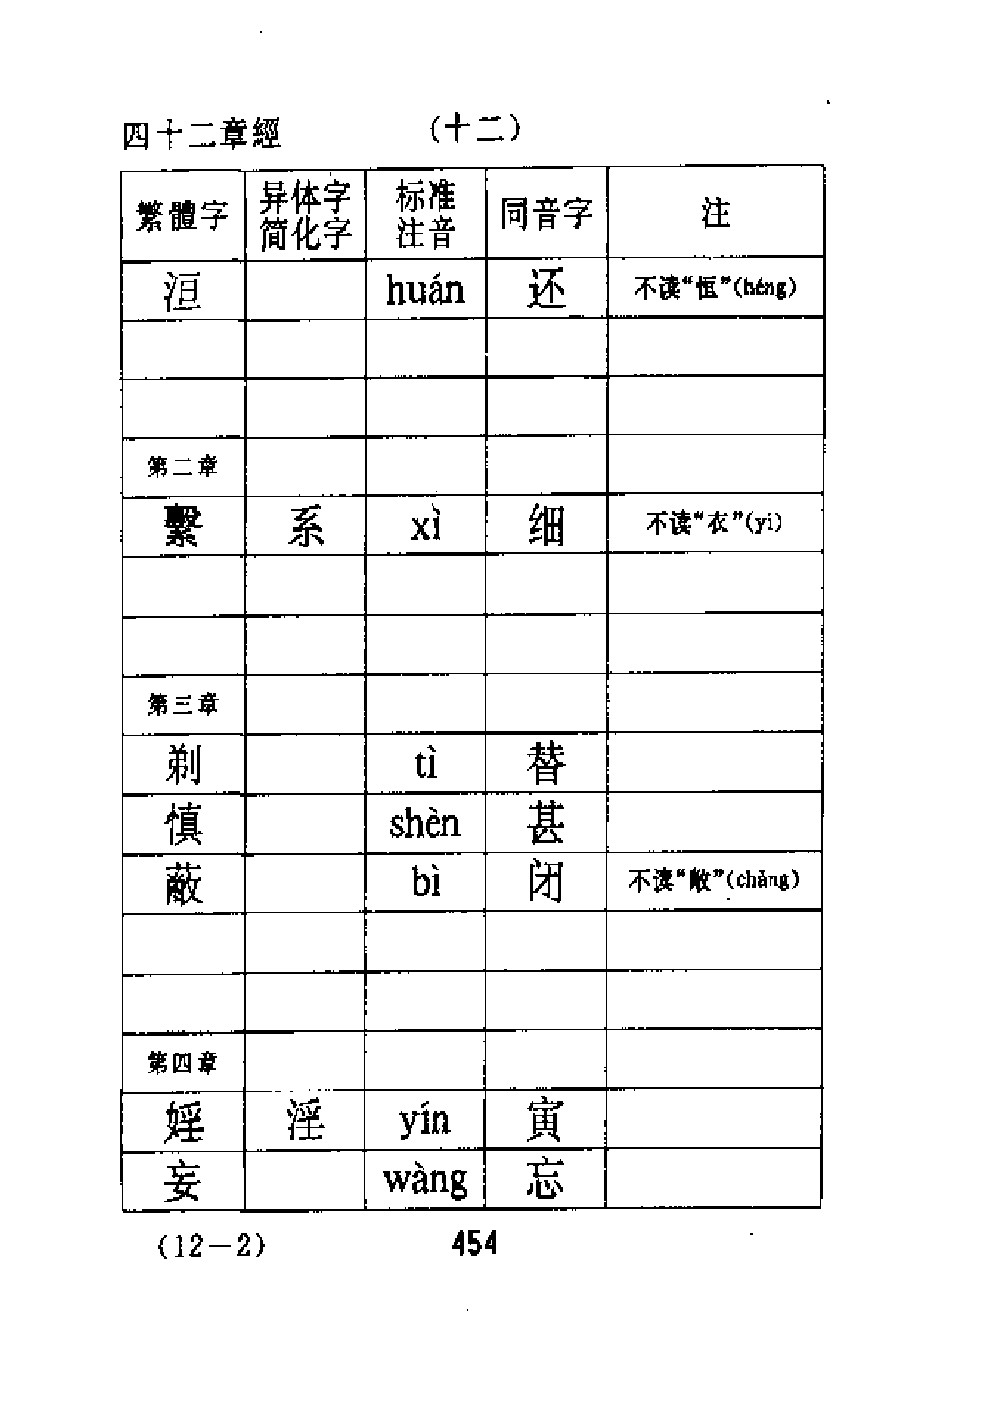 四十二章經 (十二)
繁體字 异体字 简化字 标准注音 同音字 注
洹 huán 还 不读“恒”(héng)
第二章
繫 系 xì 细 不读“衣”(yi)
第三章
剃 tì 替
慎 shèn 甚
蔽 bì 闭 不读“敞”(chǎng)
第四章
婬 淫 yín 寅
妄 wàng 忘
(12－2) 454